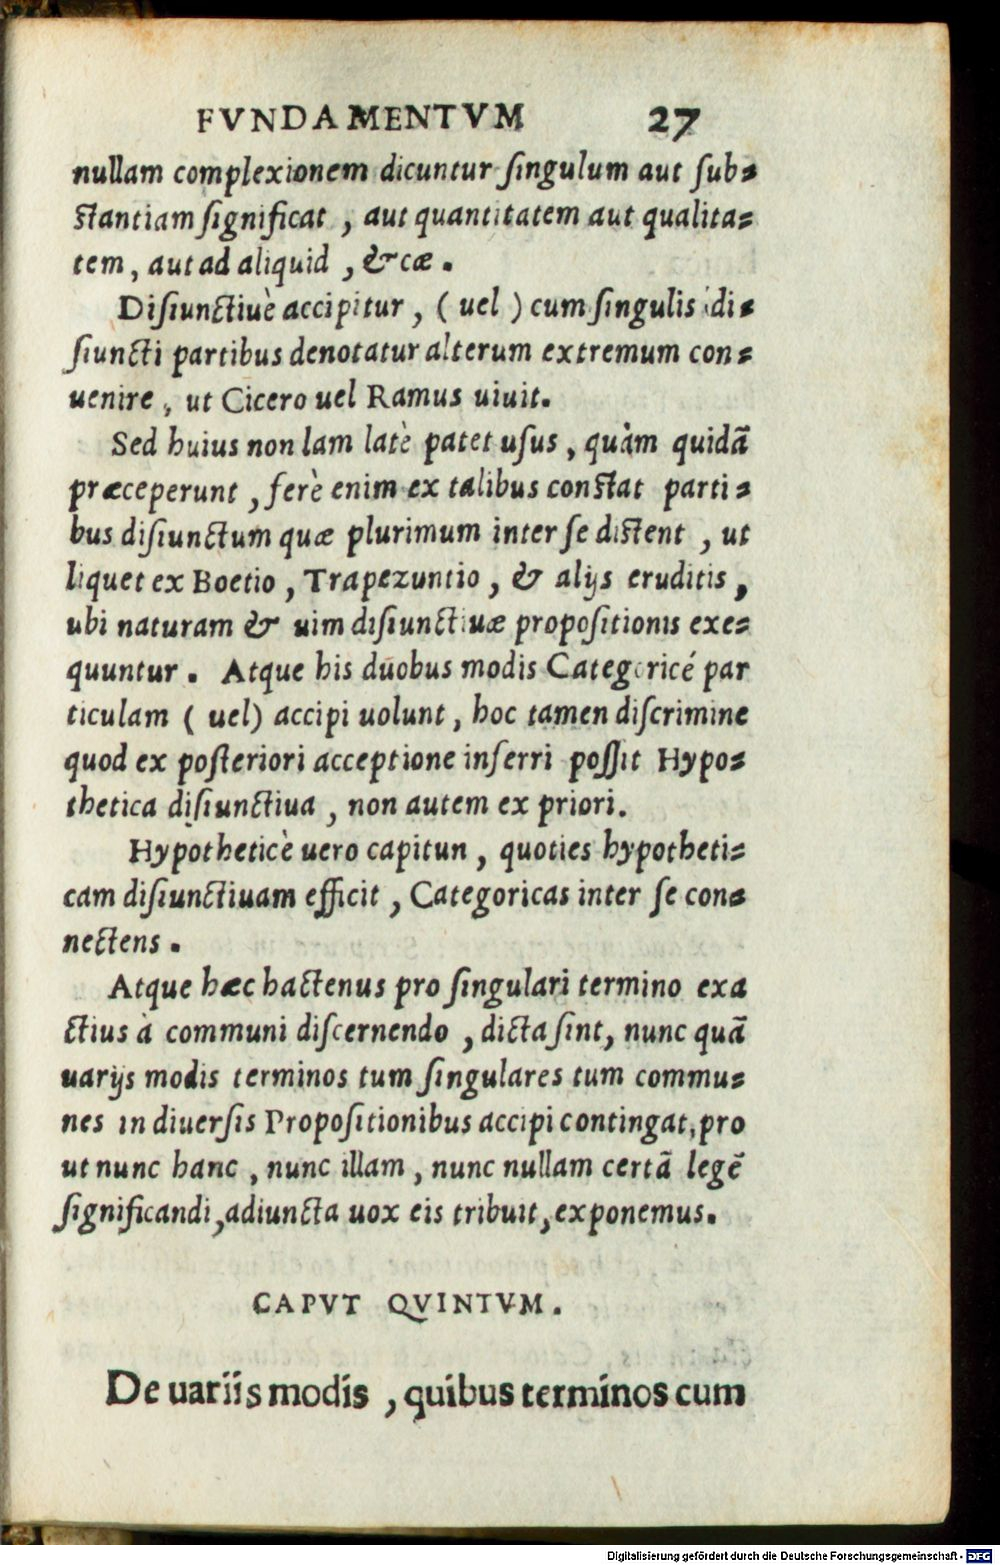 FVNDAMENTVM 27
nullam complexionem dicuntur singulum aut sub-
stantiam significat, aut quantitatem aut qualita-
tem, aut ad aliquid, &cæ.
Disiunctiuè accipitur, (uel) cum singulis di-
siuncti partibus denotatur alterum extremum con-
uenire, ut Cicero uel Ramus uiuit.
Sed huius non lam latè patet usus, quàm quidã
præceperunt, ferè enim ex talibus constat parti-
bus disiunctum quæ plurimum inter se distent, ut
liquet ex Boetio, Trapezuntio, & alijs eruditis,
ubi naturam & uim disiunctiuæ propositionis exe-
quuntur. Atque his duobus modis Categoricé par
ticulam (uel) accipi uolunt, hoc tamen discrimine
quod ex posteriori acceptione inferri possit Hypo-
thetica disiunctiua, non autem ex priori.
Hypotheticè uero capitun, quoties hypotheti-
cam disiunctiuam efficit, Categoricas inter se con-
nectens.
Atque hæc hactenus pro singulari termino exa
ctius à communi discernendo, dicta sint, nunc quã
uarijs modis terminos tum singulares tum commu-
nes in diuersis Propositionibus accipi contingat, pro
ut nunc hanc, nunc illam, nunc nullam certã legẽ
significandi, adiuncta uox eis tribuit, exponemus.
CAPVT QVINTVM.
De uariis modis, quibus terminos cum
Digitalisierung gefördert durch die Deutsche Forschungsgemeinschaft - DFG